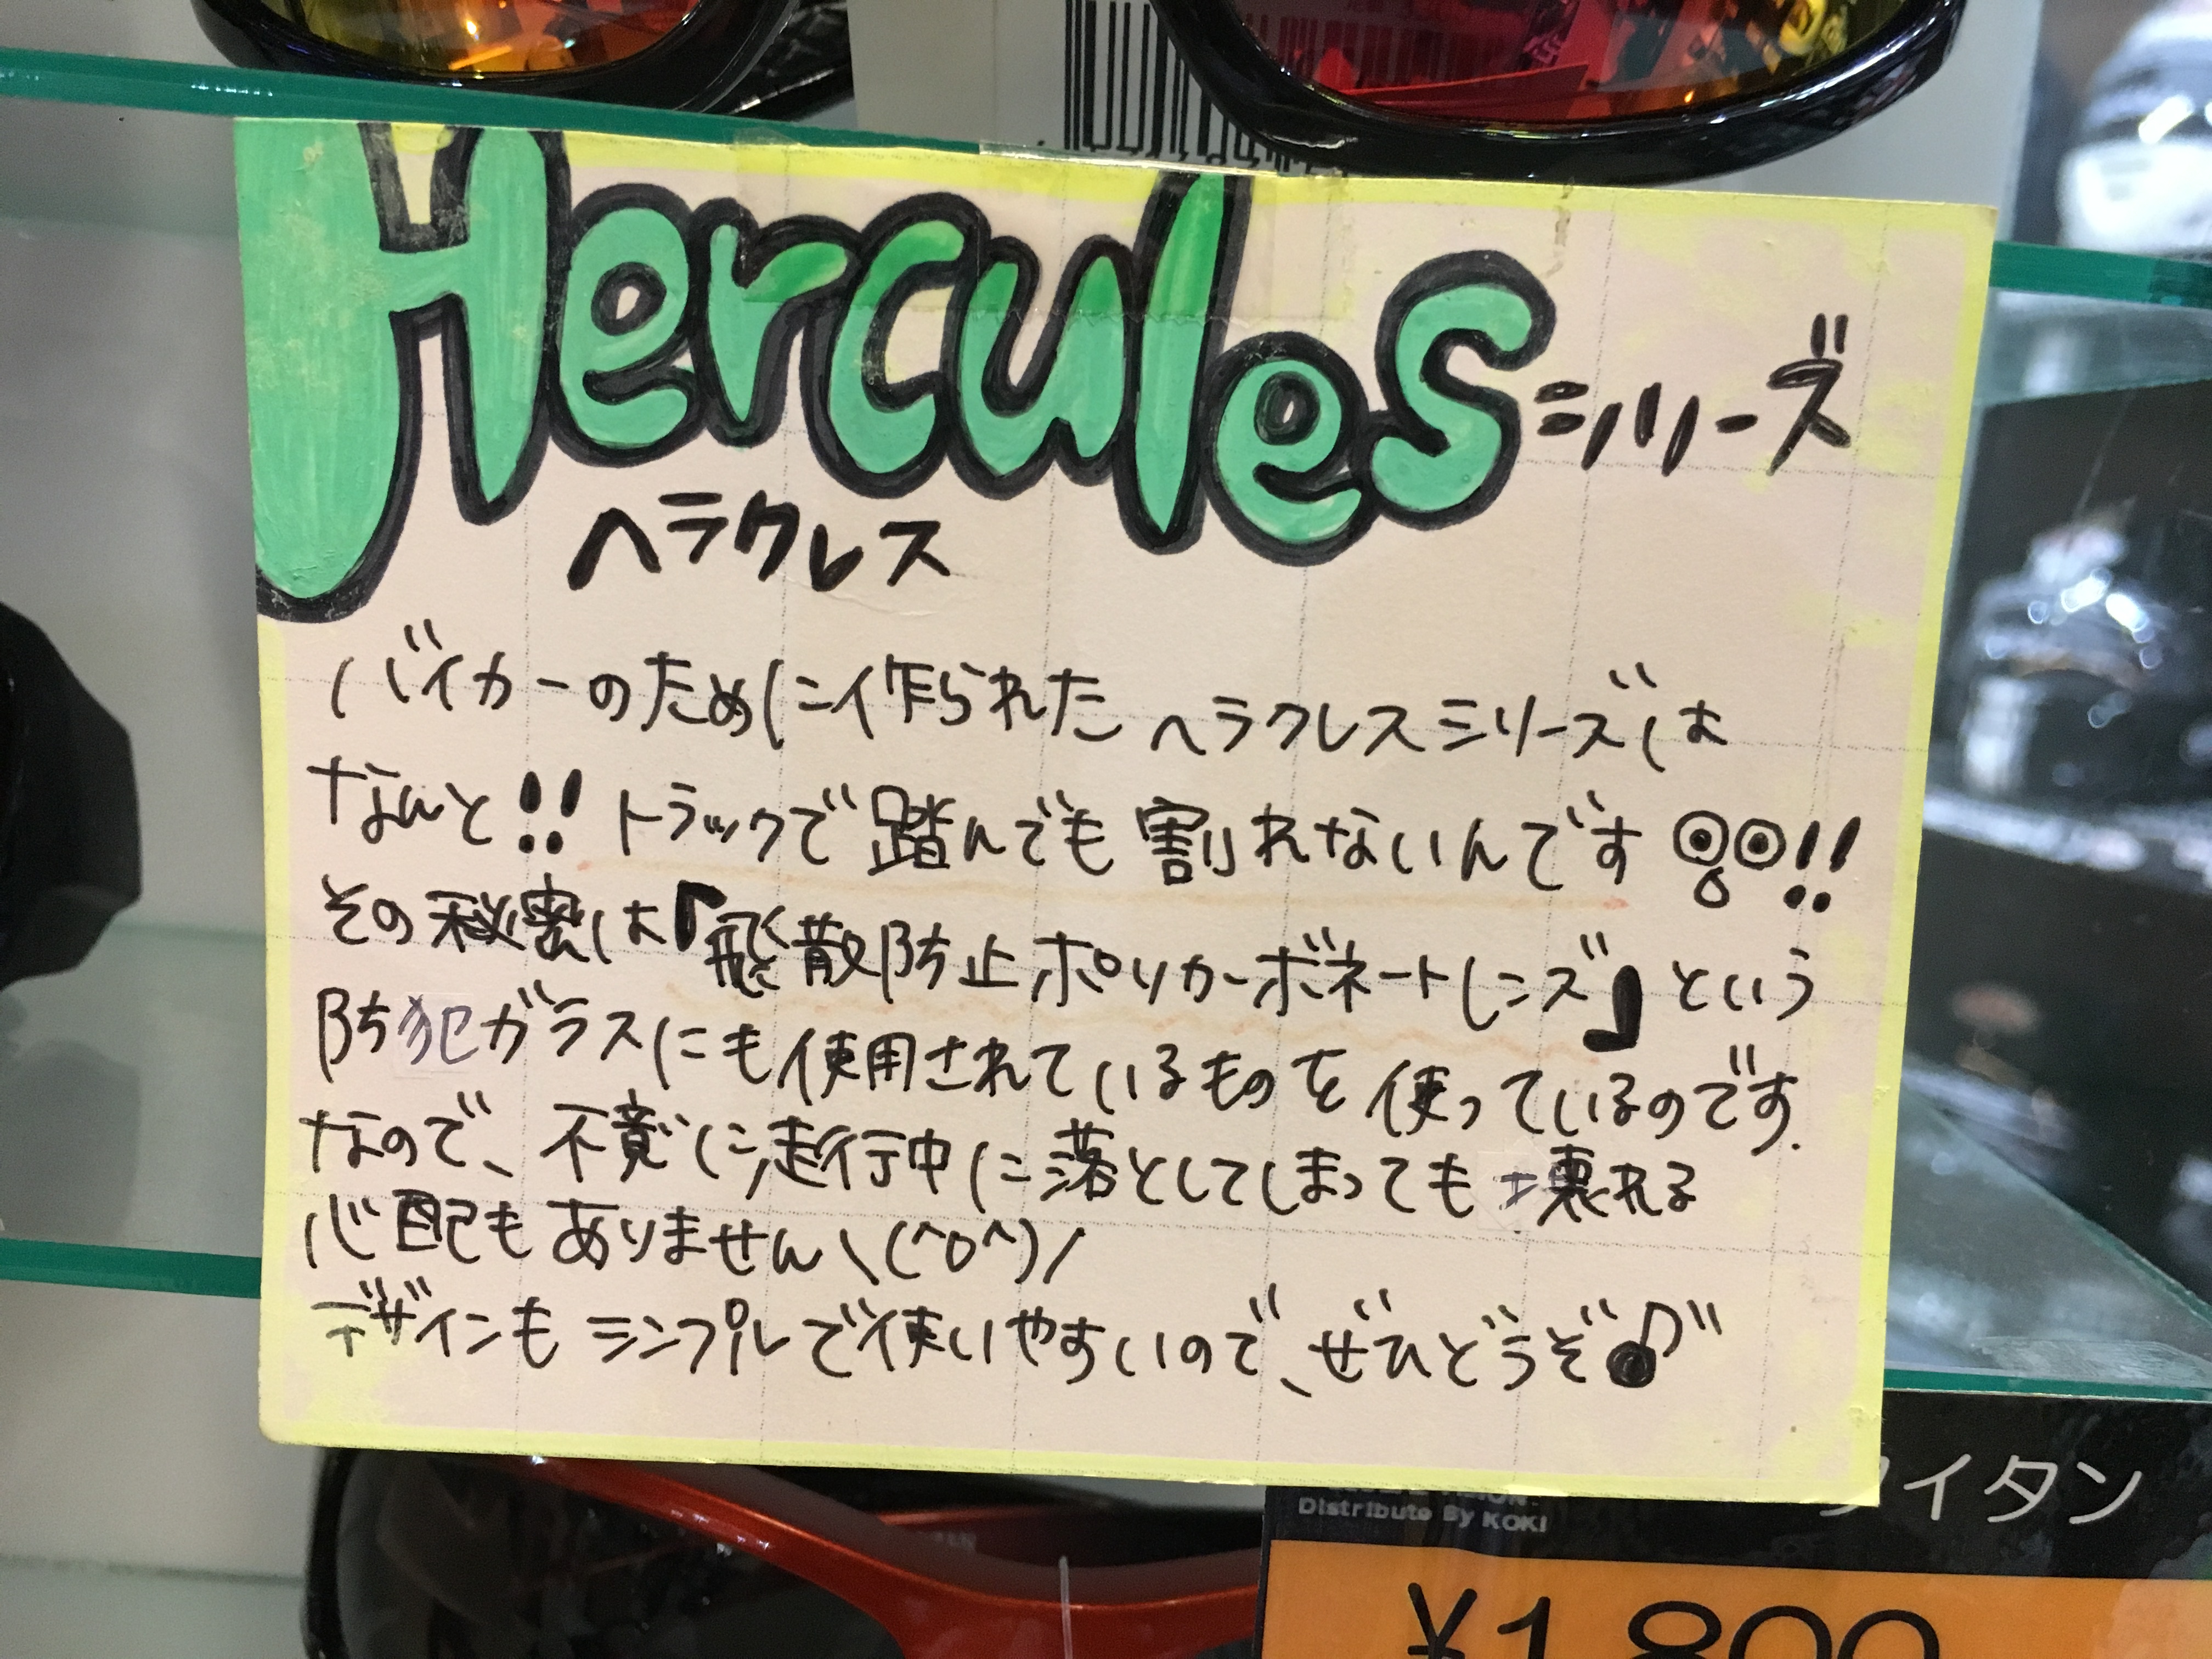 Hercules シリーズ
ヘラクレス
バイカーのために作られた ヘラクレスシリーズは
なんと!! トラックで踏んでも 割れないんです!!
その秘密は『飛散防止ポリカーボネートレンズ』という
防犯ガラスにも使用されているものを 使っているのです.
なので、不意に走行中に落としてしまっても壊れる
心配もありません\(^o^)/
デザインも シンプルで使いやすいので、ぜひどうぞ♪"
Distribute By KOKI
イタン
¥1,800